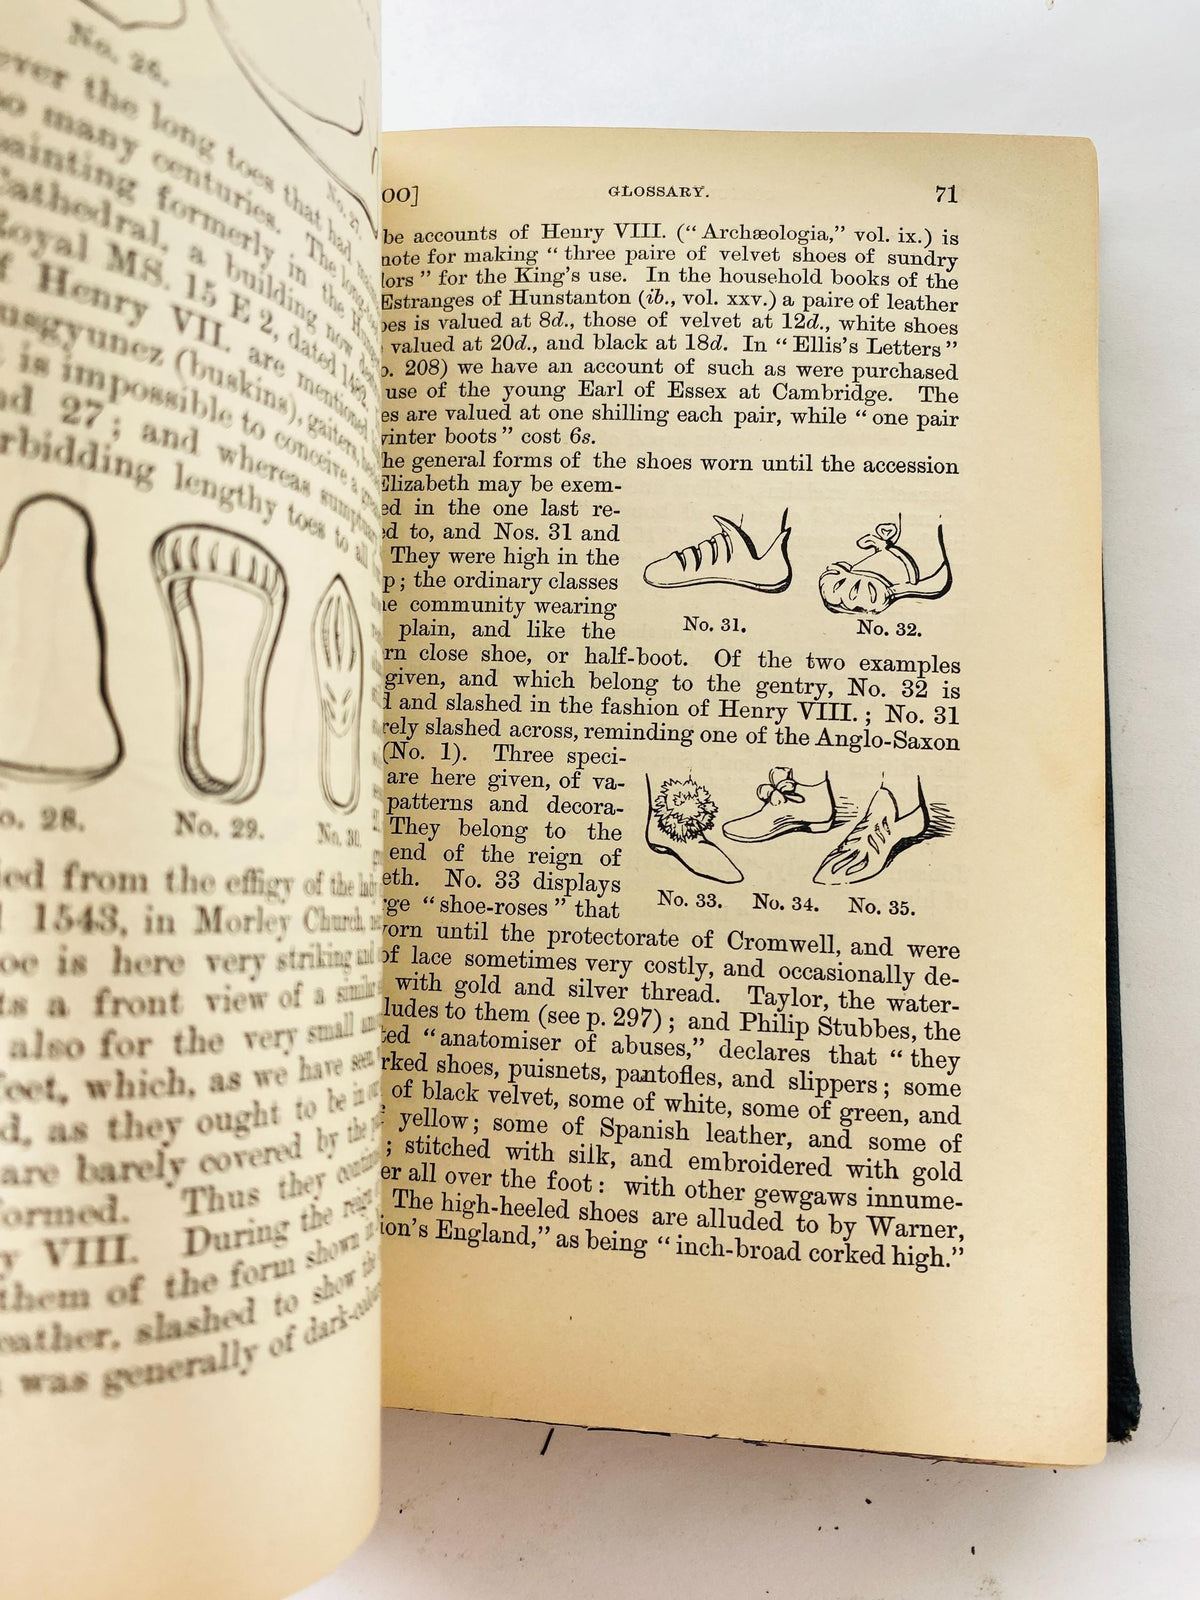 No. 26.
No. 27.
ever the long toes that had
so many centuries. The long
painting formerly in the
Cathedral, a building now
Royal MS. 15 E 2, dated 1482
f Henry VII. are mentioned
usgyunez (buskins), gaiters,
is impossible to conceive a
nd 27; and whereas
rbidding lengthy toes to all
o. 28.
No. 29.
No. 30.
ied from the effigy of the lady
1543, in Morley Church,
oe is here very striking and
ts a front view of a similar
also for the very small
feet, which, as we have seen
d, as they ought to be in
are barely covered by the
formed. Thus they
y VIII. During the reign
them of the form shown in
eather, slashed to show the
was generally of
OO]
GLOSSARY.
71
be accounts of Henry VIII. (“Archæologia,” vol. ix.) is
note for making “three paire of velvet shoes of sundry
lors” for the King's use. In the household books of the
Estranges of Hunstanton (ib., vol. xxv.) a paire of leather
oes is valued at 8d., those of velvet at 12d., white shoes
valued at 20d., and black at 18d. In “Ellis's Letters”
p. 208) we have an account of such as were purchased
use of the young Earl of Essex at Cambridge. The
es are valued at one shilling each pair, while “one pair
winter boots” cost 6s.
he general forms of the shoes worn until the accession
Elizabeth may be exem-
ed in the one last re-
ed to, and Nos. 31 and
They were high in the
p; the ordinary classes
ne community wearing
plain, and like the
No. 31.
No. 32.
rn close shoe, or half-boot. Of the two examples
given, and which belong to the gentry, No. 32 is
d and slashed in the fashion of Henry VIII.; No. 31
rely slashed across, reminding one of the Anglo-Saxon
(No. 1). Three speci-
are here given, of va-
patterns and decora-
They belong to the
end of the reign of
eth. No. 33 displays
rge “shoe-roses” that
No. 33.
No. 34.
No. 35.
orn until the protectorate of Cromwell, and were
of lace sometimes very costly, and occasionally de-
with gold and silver thread. Taylor, the water-
ludes to them (see p. 297); and Philip Stubbes, the
ted “anatomiser of abuses,” declares that “they
rked shoes, puisnets, pantofles, and slippers; some
of black velvet, some of white, some of green, and
f yellow; some of Spanish leather, and some of
; stitched with silk, and embroidered with gold
er all over the foot: with other gewgaws innume-
The high-heeled shoes are alluded to by Warner,
ion's England,” as being “inch-broad corked high.”